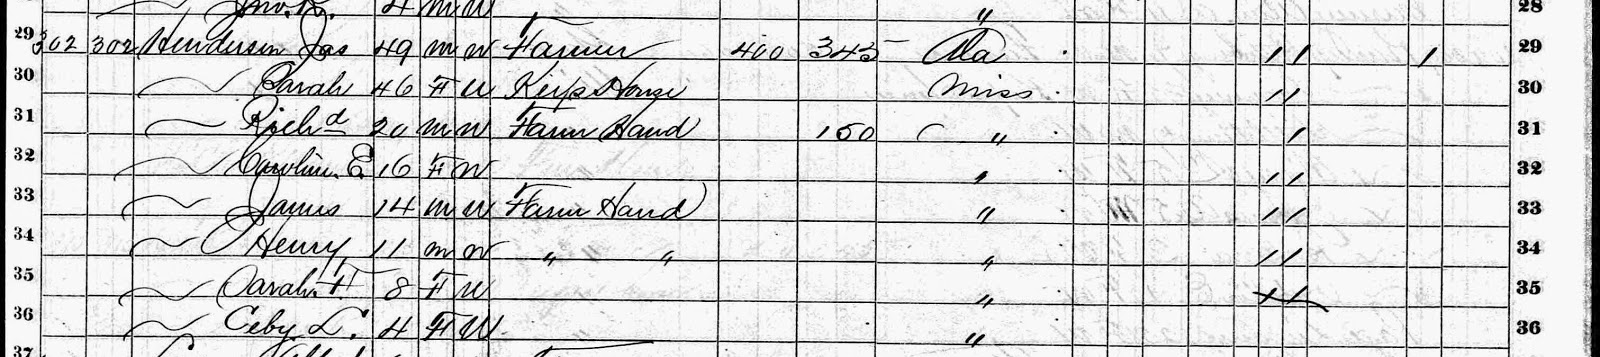 Jno. R. 4 m W " 28
29 302 302 Henderson Jas 49 m W Farmer 400 345 Ala 1 1 1 29
30 Sarah 46 F W Keeps House Miss 1 1 30
31 Rich d 20 m W Farm Hand 150 " 1 31
32 Caroline E. 16 F W " 1 1 32
33 James 14 m W Farm Hand " 1 1 33
34 Henry 11 m W " " " 1 1 34
35 Sarah F. 8 F W " 35
36 Ceby L. 4 F W " 36
37